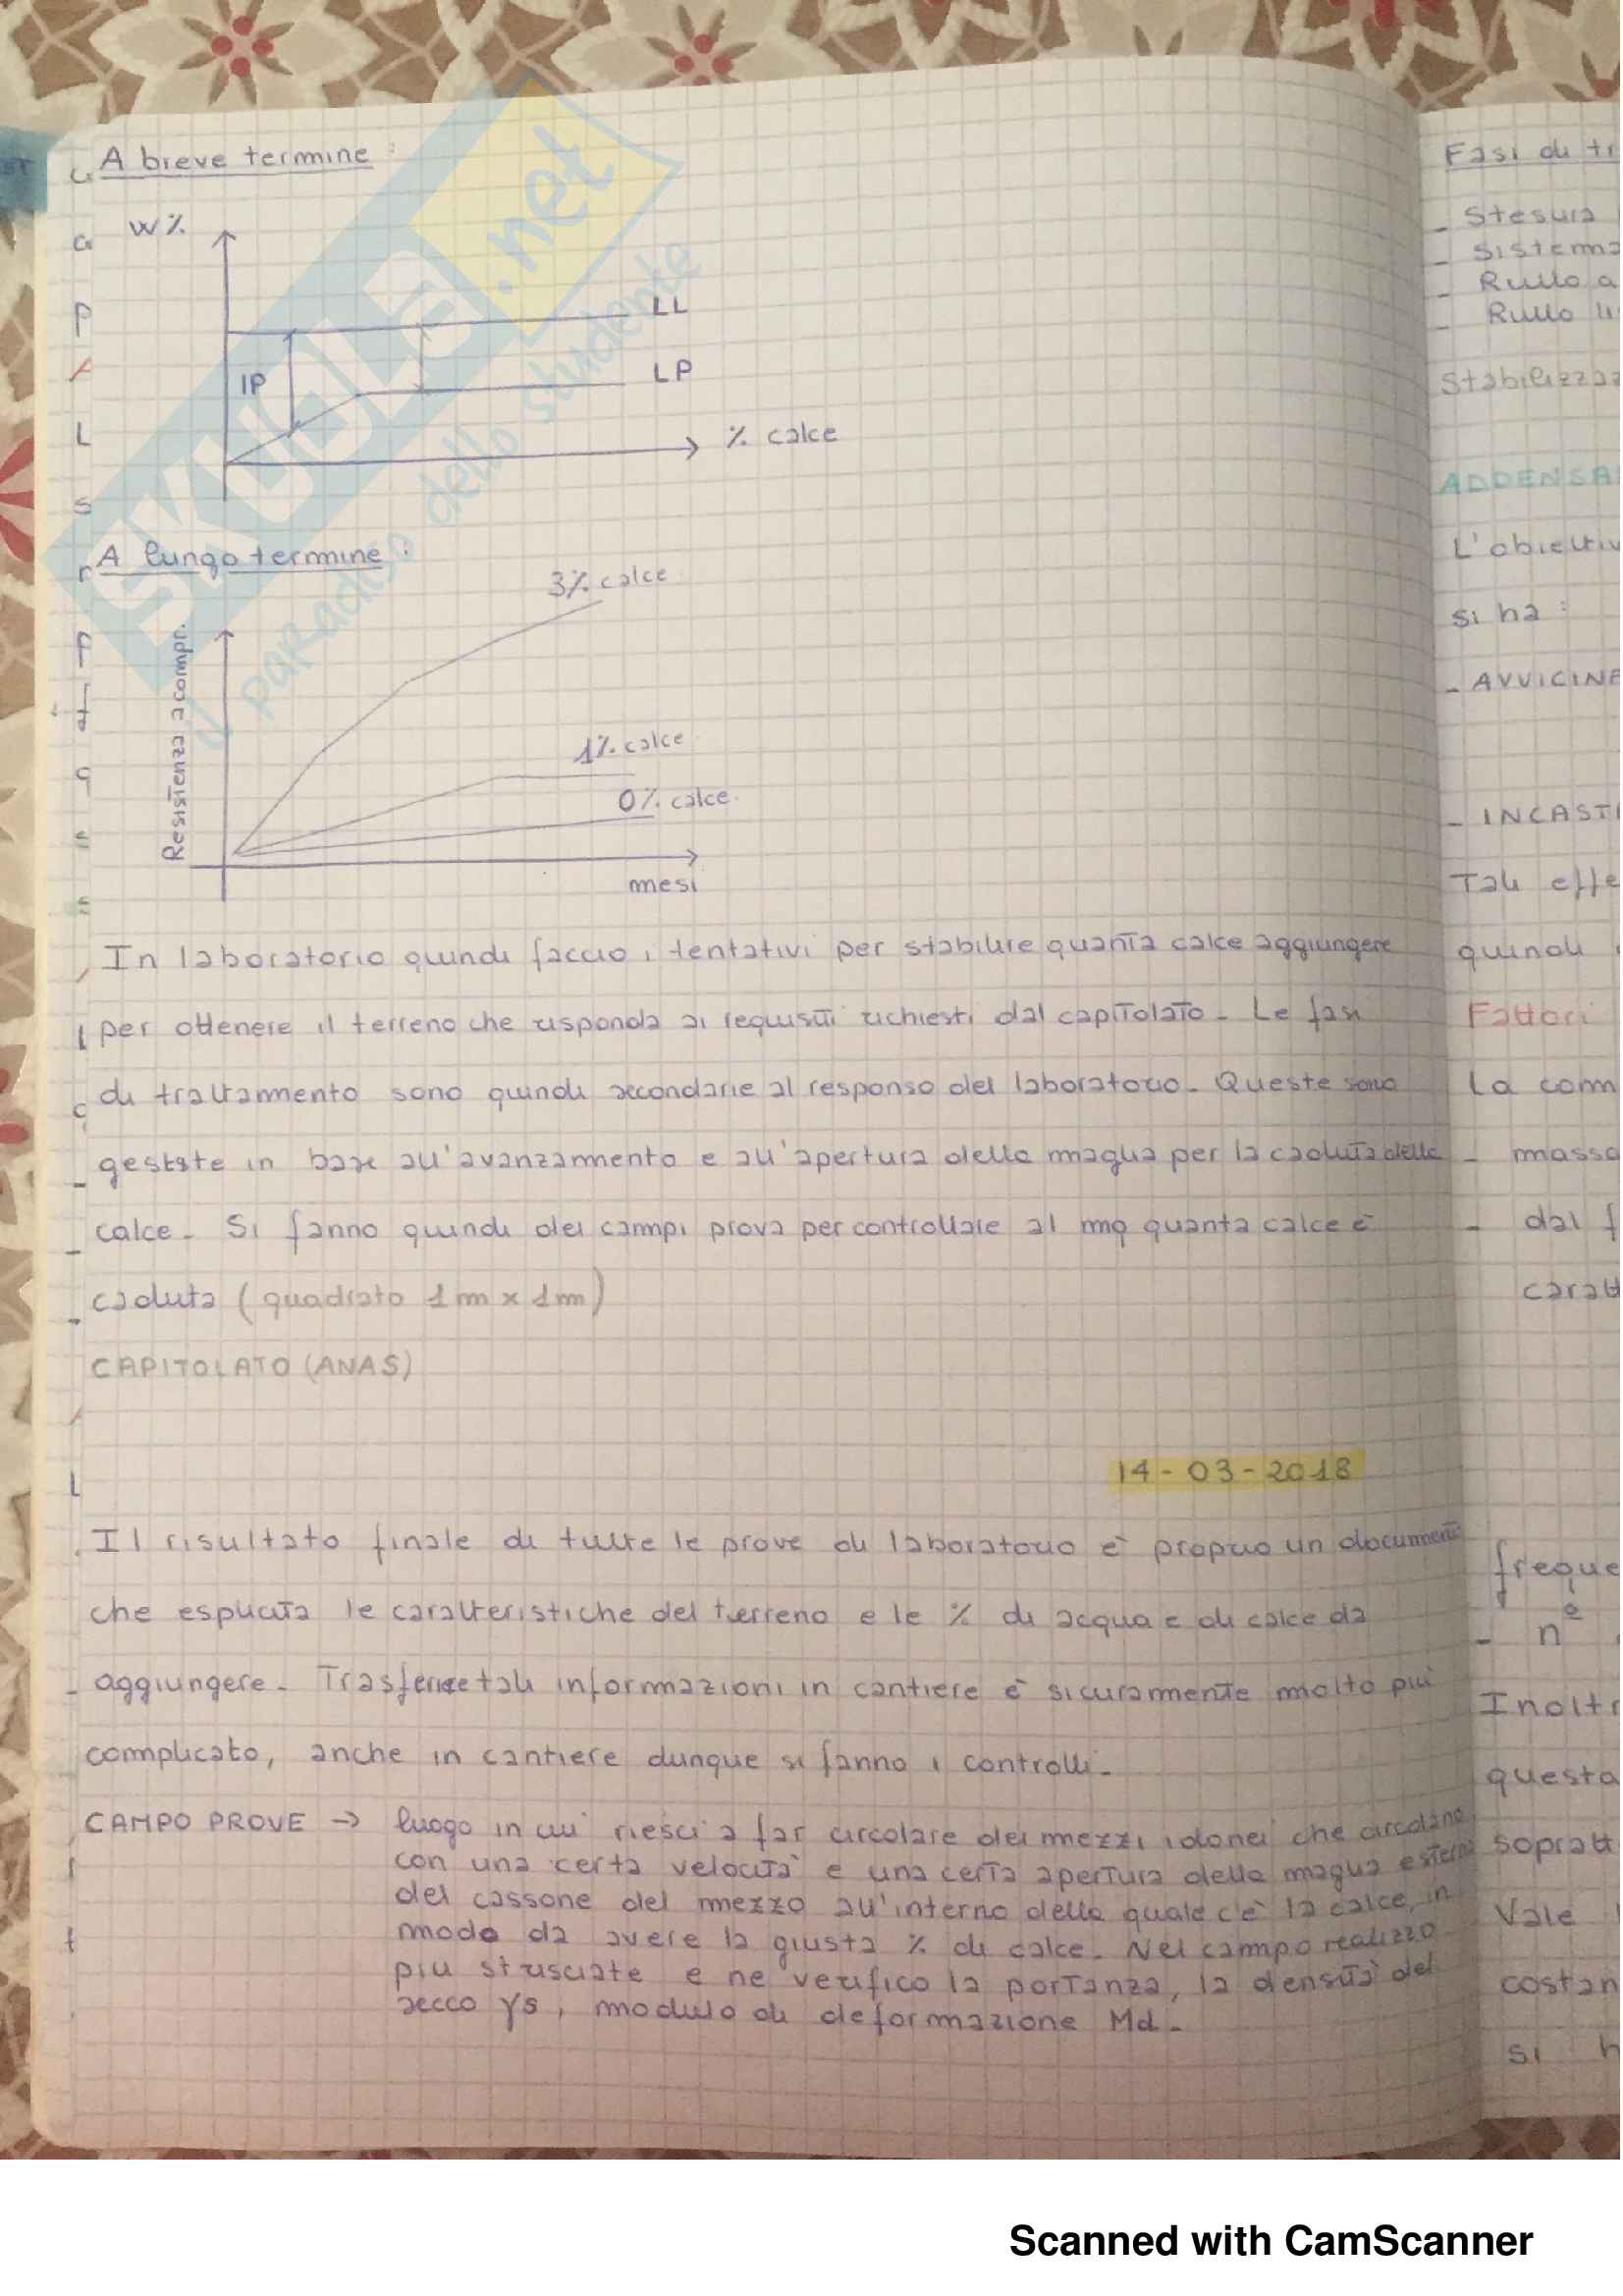 A breve termine :
W%
LL
LP
IP
% calce
A lungo termine :
3% calce
Resistenza a compr.
1% calce
0% calce
mesi
In laboratorio quindi faccio i tentativi per stabilire quanta calce aggiungere
per ottenere il terreno che risponda ai requisiti richiesti dal capitolato. Le fasi
di trattamento sono quindi secondarie al responso del laboratorio. Queste sono
gestite in base all'avanzamento e all'apertura delle maglia per la caduta della
calce. Si fanno quindi dei campi prova per controllare al mq quanta calce è
caduta (quadrato 1m x 1m)
CAPITOLATO (ANAS)
14-03-2018
Il risultato finale di tutte le prove di laboratorio è proprio un document
che esplicita le caratteristiche del terreno e le % di acqua e di calce da
aggiungere. Trasferire tali informazioni in cantiere è sicuramente molto più
complicato, anche in cantiere dunque si fanno i controlli.
CAMPO PROVE → luogo in cui riesci a far circolare dei mezzi idonei che circolano
con una certa velocità e una certa apertura della maglia esterna
del cassone del mezzo all'interno della quale c'è la calce, in
modo da avere la giusta % di calce. Nel campo realizzo
più strisciate e ne verifico la portanza, la densità del
secco γs, modulo di deformazione Md.
Fasi di tr
- Stesura
- Sistema
- Rullo a
- Rullo li
Stabilizzaz
ADDENSA
L'obiettiv
si ha :
- AVVICINA
- INCASTR
Tali effe
quindi
Fattori
La com
- massa
- dal f
caratt
freque
- n°
Inoltr
questa
sopratt
Vale
costan
si h
SKUOLA.net
il paradiso dello studente
Scanned with CamScanner